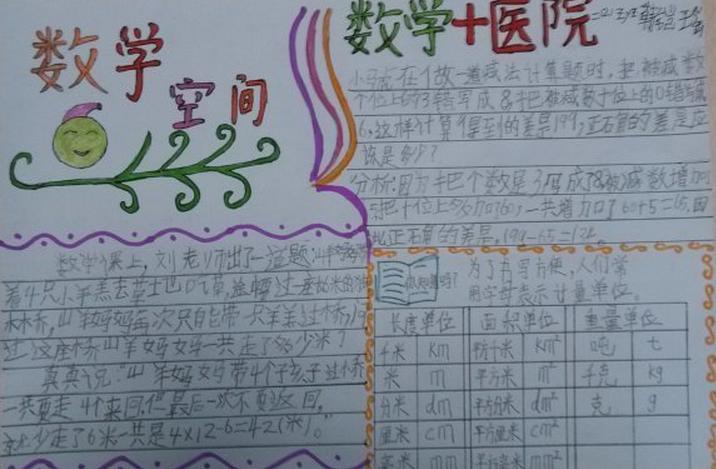 数学
空间
数学+医院
小马虎在做一道减法计算题时,把被减数
个位上的3错写成8,把被减数十位上的0错写成
6,这样计算得到的差是199,正确的差是应
该是多少?
分析:因为把个数是3写成了8,被减数增加
5,把十位上多加了60,一共增加了60+5=65,因
此正确的差是,199-65=134。
数学课上,刘老师出了一道题:山羊妈妈带
着4只小羊羔去
林桥,山羊妈妈每次只能带一只羊羔过桥,
过这座桥山羊妈妈一共走了多少米?
真真说:"山羊妈妈带4个孩子过桥
一共要走4个来回,但最后一次不要返回,
就少走了6米一共是4×12-6=42(米)。"
你知道吗?
为了书写方便,人们常
用字母表示计量单位。
长度单位 面积单位 重量单位
千米 km 平方千米 km² 吨 t
米 m 平方米 m² 千克 kg
分米 dm 平方分米 dm² 克 g
厘米 cm 平方厘米 cm²
毫米 mm 平方毫米 mm²